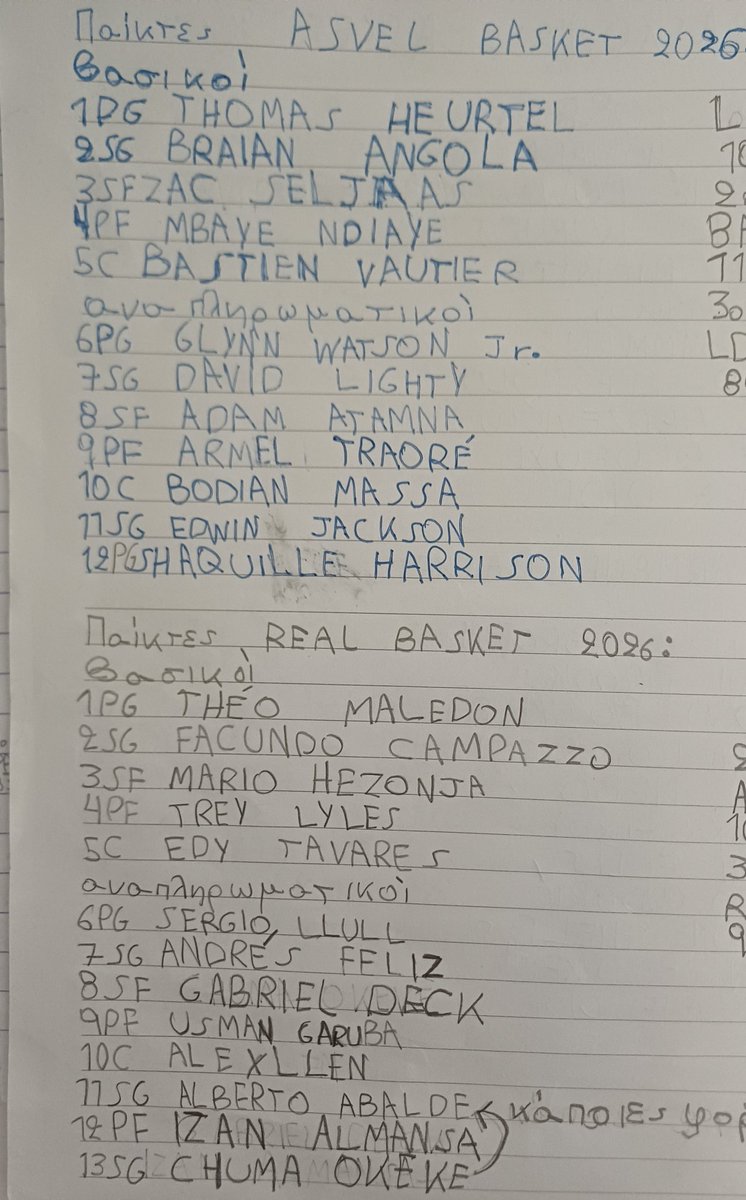 Παίκτες ASVEL BASKET 2026
βασικοί
1PG THOMAS HEURTEL
2SG BRAIAN ANGOLA
3SF ZAC SELJAAS
4PF MBAYE NDIAYE
5C BASTIEN VAUTIER
αναπληρωματικοί
6PG GLYNN WATSON Jr.
7SG DAVID LIGHTY
8SF ADAM ATAMNA
9PF ARMEL TRAORÉ
10C BODIAN MASSA
11SG EDWIN JACKSON
12PG SHAQUILLE HARRISON
Παίκτες REAL BASKET 2026:
βασικοί
1PG THÉO MALEDON
2SG FACUNDO CAMPAZZO
3SF MARIO HEZONJA
4PF TREY LYLES
5C EDY TAVARES
αναπληρωματικοί
6PG SERGIO, LLULL
7SG ANDRÉS FELIZ
8SF GABRIEL DECK
9PF USMAN GARUBA
10C ALEXLLEN
11SG ALBERTO ABALDE κάποιες φορ
12PF IZAN ALMANSA
13SG CHUMA OKEKE